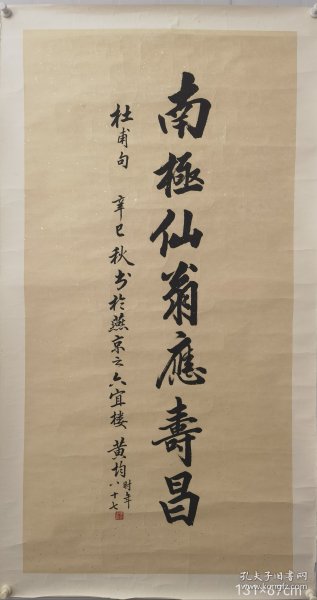 南極仙翁應壽昌
杜甫句 辛巳秋书於燕京之六宜樓 黄均 时年八十七
孔夫子旧书网
131×67cm